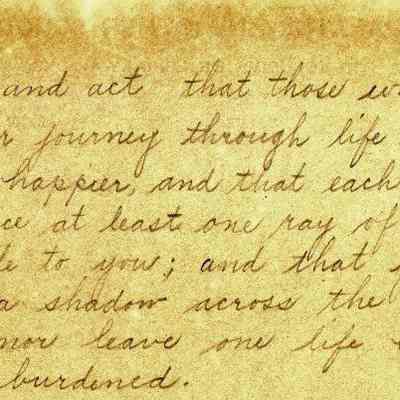 and act that those
journey through life
happier, and that each
at least one ray of
to you; and that
a shadow across the
leave one life
burdened.